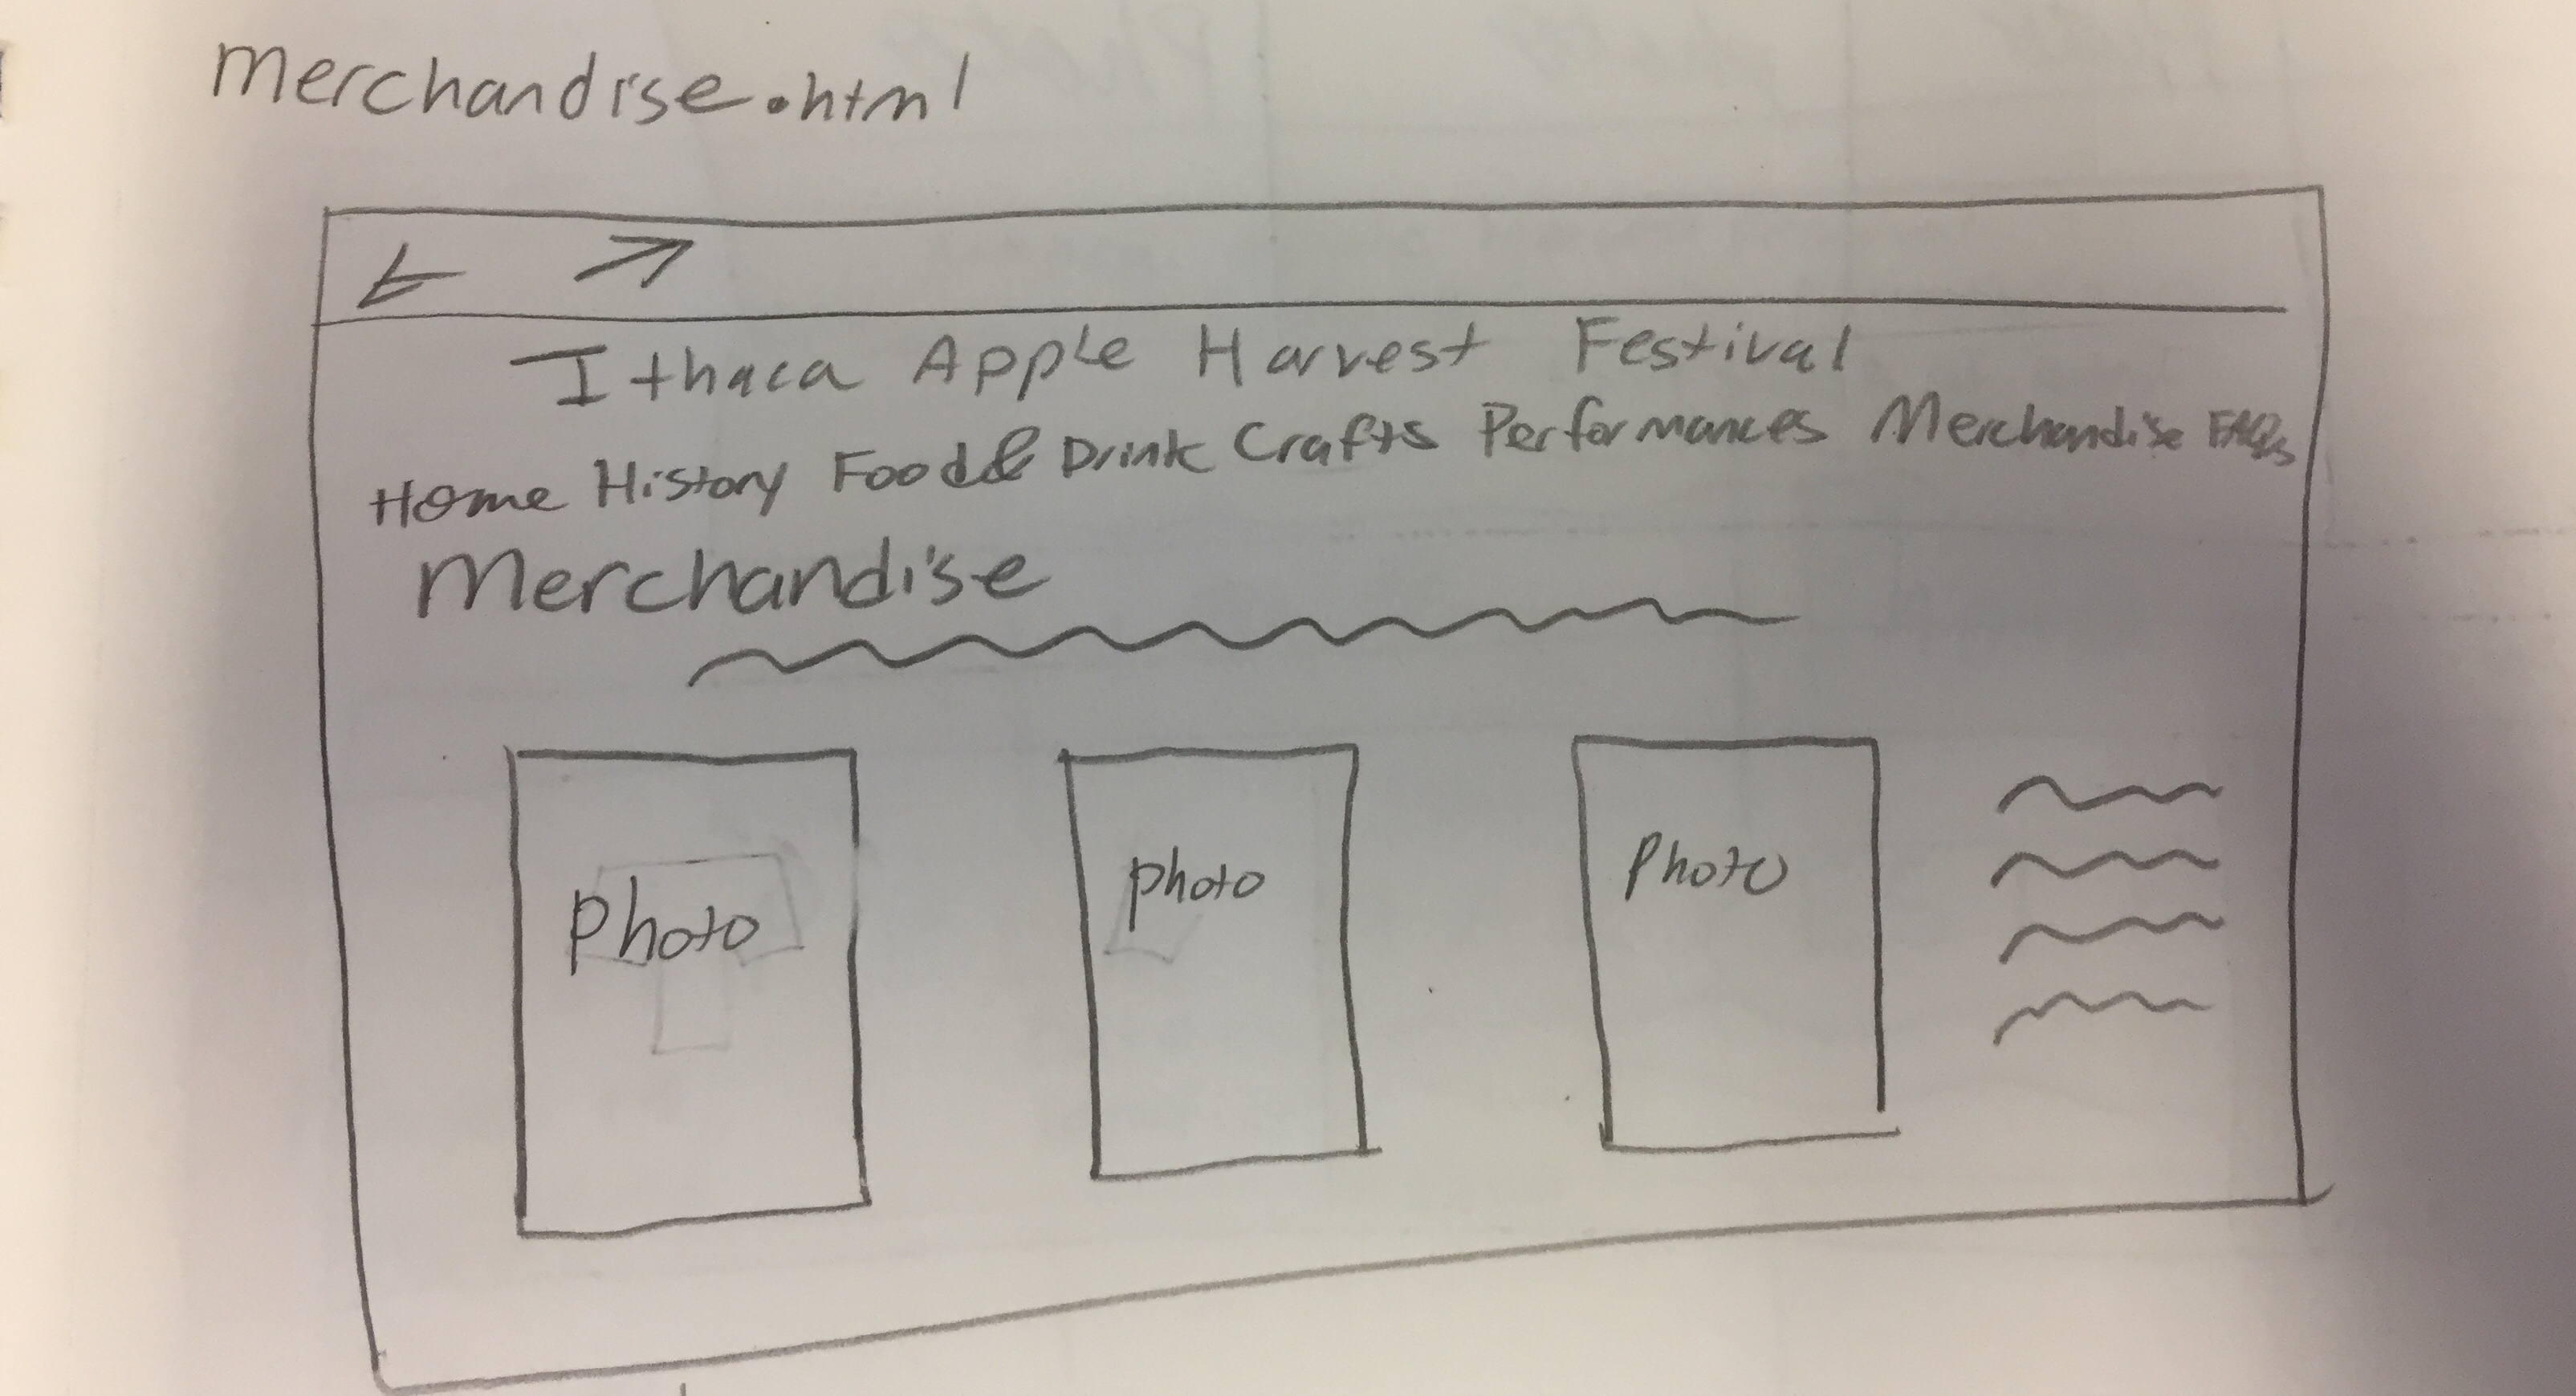 merchandise.html
Ithaca Apple Harvest Festival
Home History Food & Drink Crafts Performances Merchandise FAQs
Merchandise
Photo photo Photo